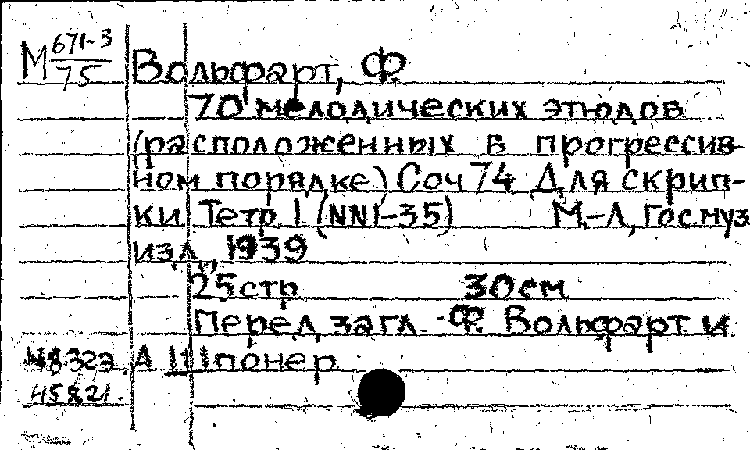 М 671-3
75
Вольфарт, Ф.
70 мелодических этюдов
(расположенных в прогрессив-
ном порядке) Соч 74 Для скрип-
ки Тетр I (NN1-35) М.-Л, Гос.муз
изд., 1939
25 стр 30 см
Перед загл. Ф. Вольфарт и
А Шпонер